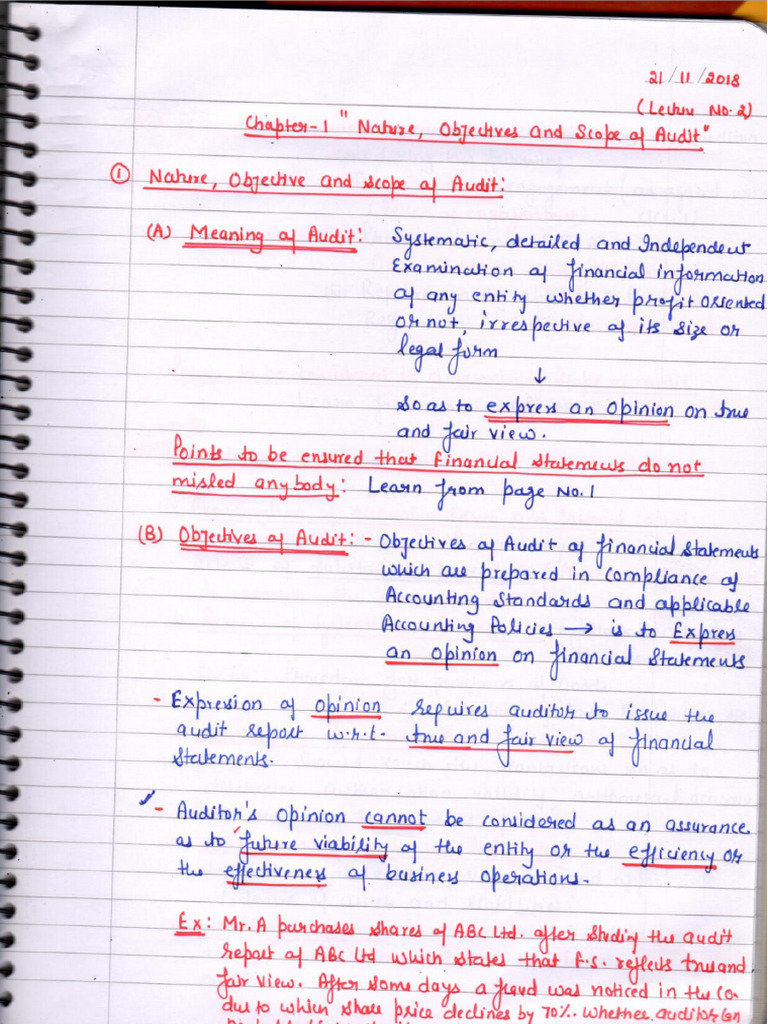 21/11/2018
(Lecture No. 2)
Chapter-1 "Nature, Objectives and Scope of Audit"
① Nature, Objective and scope of Audit:
(A) Meaning of Audit: Systematic, detailed and Independent
Examination of financial information
of any entity whether profit oriented
or not, irrespective of its size or
legal form
↓
so as to express an opinion on true
and fair view.
Points to be ensured that financial statements do not
misled anybody: Learn from page No. 1
(B) Objectives of Audit: - Objectives of Audit of financial statements
which are prepared in compliance of
Accounting Standards and applicable
Accounting Policies → is to Express
an opinion on financial statements
- Expression of opinion requires auditor to issue the
audit report w.r.t. true and fair view of financial
statements.
- Auditor's opinion cannot be considered as an assurance
as to future viability of the entity or the efficiency or
the effectiveness of business operations.
Ex: Mr. A purchases shares of ABC Ltd. after studying the audit
report of ABC Ltd which states that f.s. reflects true and
fair view. After some days a fraud was noticed in the Co.
due to which share price declines by 70%. Whether auditor can